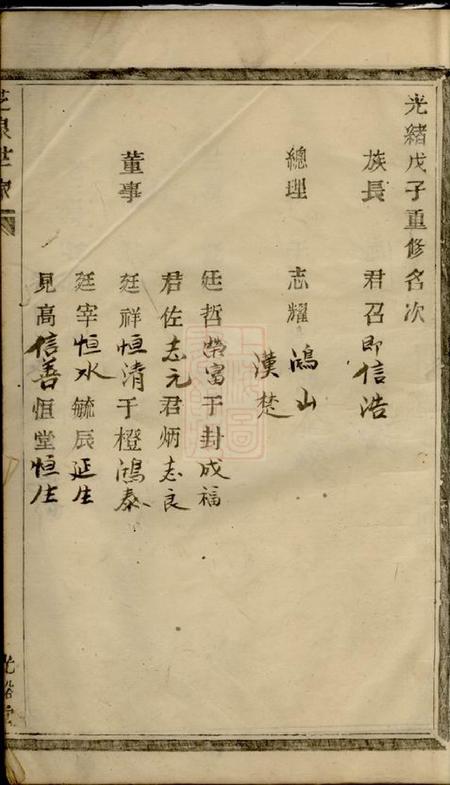 光緒戊子重修名次
族長 君召即信浩
總理 志耀鴻山
漢楚
廷哲榮富于封成福
君佐志元君炳志良
董事 廷祥恒清于橙鴻泰
廷宰恒水毓辰延生
見高信善恒堂恒生
世家